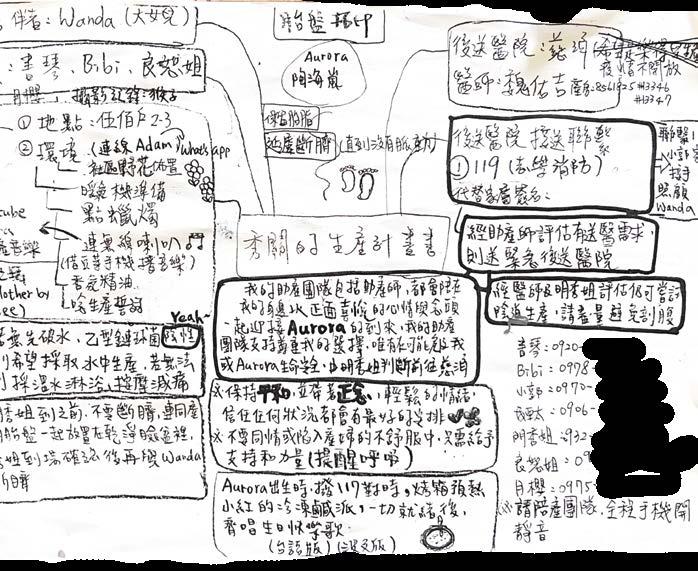 伴者：Wanda (大女兒)
：書琴、Bibi、良恕姐
月櫻、攝影記錄：猴子
① 地點：伍佰戶2-3
② 環境 (連線 Adam) what's app
社區野花佈置
暖氣機準備
點蠟燭
連無線喇叭
(借 手機播音樂)
香氛精油
Yeah~
若無先破水，乙型鏈球菌陰性
則希望採取水中生產，若無法
則採溫水淋浴、按摩減痛
姐到之前，不要斷臍，連同產
胎盤一起放在乾淨臉盆裡，
姐到場確認後再照Wanda
斷臍
胎盤拓印
Aurora
陶海嵐
保留胎脂
延遲斷臍 (直到沒有脈動)
秀閩的生產計畫書
我的助產團隊包括助產師，都會陪在
我的身邊，以正面喜悅的心情與念頭
一起迎接Aurora的到來，我的助產
團隊支持尊重我的選擇，唯有可能危及我
或Aurora生命安全，由明香姐判斷前往慈濟
※ 保持平和，並帶著正念，輕鬆的情緒
信任任何狀況都會有最好的安排
※ 不要同情或陷入產婦的不舒服中，只需給予
支持和力量 (提醒呼吸)
Aurora出生時，撥117對時，烤箱預熱
小紅的冷凍鹹派，一切就緒後，
齊唱生日快樂歌
(台語版)
後送醫院：慈濟
疫情不開放
醫師：魏佑吉 產房：8561825 #13346
#13347
後送醫院 接送聯繫
① 119 (志學消防)
代替家屬簽名：
Wanda
經助產師評估有送醫需求，
則送緊急後送醫院
經醫師及明香姐評估仍可嘗試
陰道生產，請盡量避免剖腹
書琴：0920-
Bibi：0978-
小郭：0970-
0906-
明香姐：0932-
良恕姐：09
月櫻：0975-
※ 請陪產團隊，全程手機開
靜音